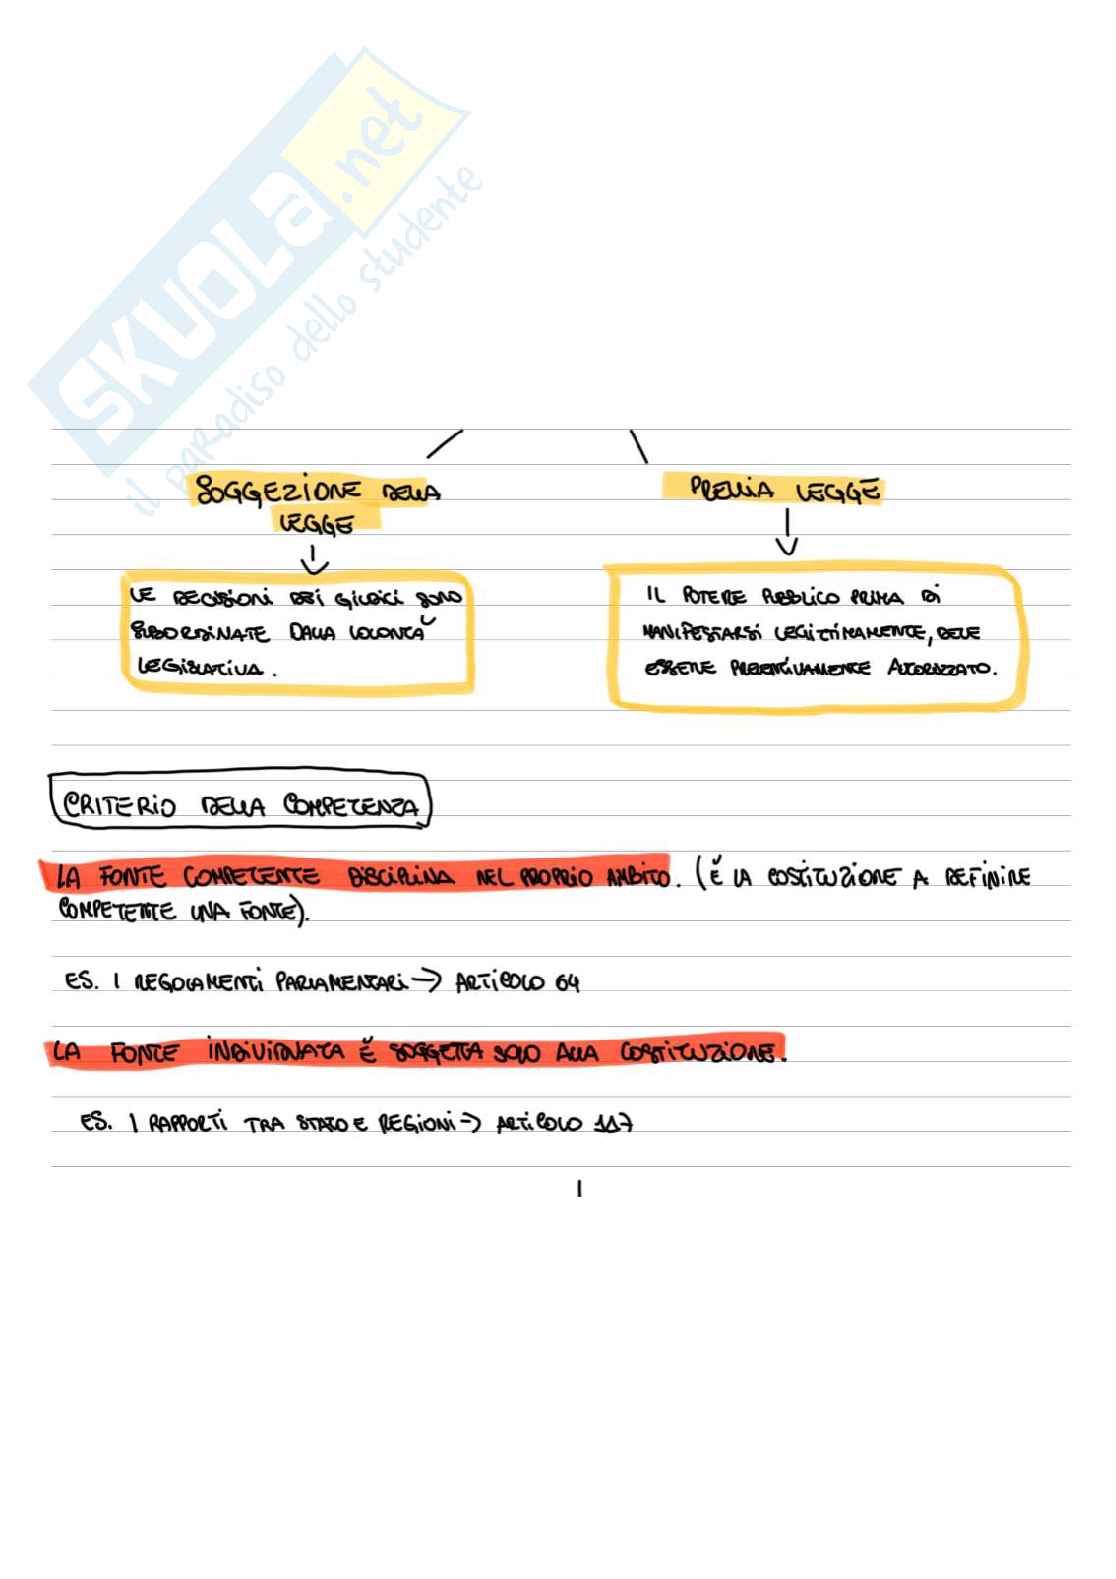 SKUOLA.net
il paradiso dello studente
SOGGEZIONE DELLA
LEGGE
PREVIA LEGGE
LE DECISIONI DEI GIUDICI SONO
SUBORDINATE DALLA VOLONTÀ
LEGISLATIVA.
IL POTERE PUBBLICO PRIMA DI
MANIFESTARSI LEGITTIMAMENTE, DEVE
ESSERE PREVENTIVAMENTE AUTORIZZATO.
CRITERIO DELLA COMPETENZA
LA FONTE COMPETENTE DISCIPLINA NEL PROPRIO AMBITO. (È LA COSTITUZIONE A DEFINIRE
COMPETENTE UNA FONTE).
ES. I REGOLAMENTI PARLAMENTARI → ARTICOLO 64
LA FONTE INDIVIDUATA È SOGGETTA SOLO ALLA COSTITUZIONE.
ES. I RAPPORTI TRA STATO E REGIONI → ARTICOLO 117